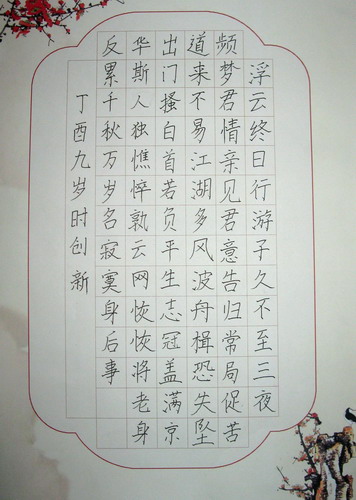 浮云终日行游子久不至三夜
频梦君情亲见君意告归常局促苦
道来不易江湖多风波舟楫恐失坠
出门搔白首若负平生志冠盖满京
华斯人独憔悴孰云网恢恢将老身
反累千秋万岁名寂寞身后事
丁酉九岁时创新